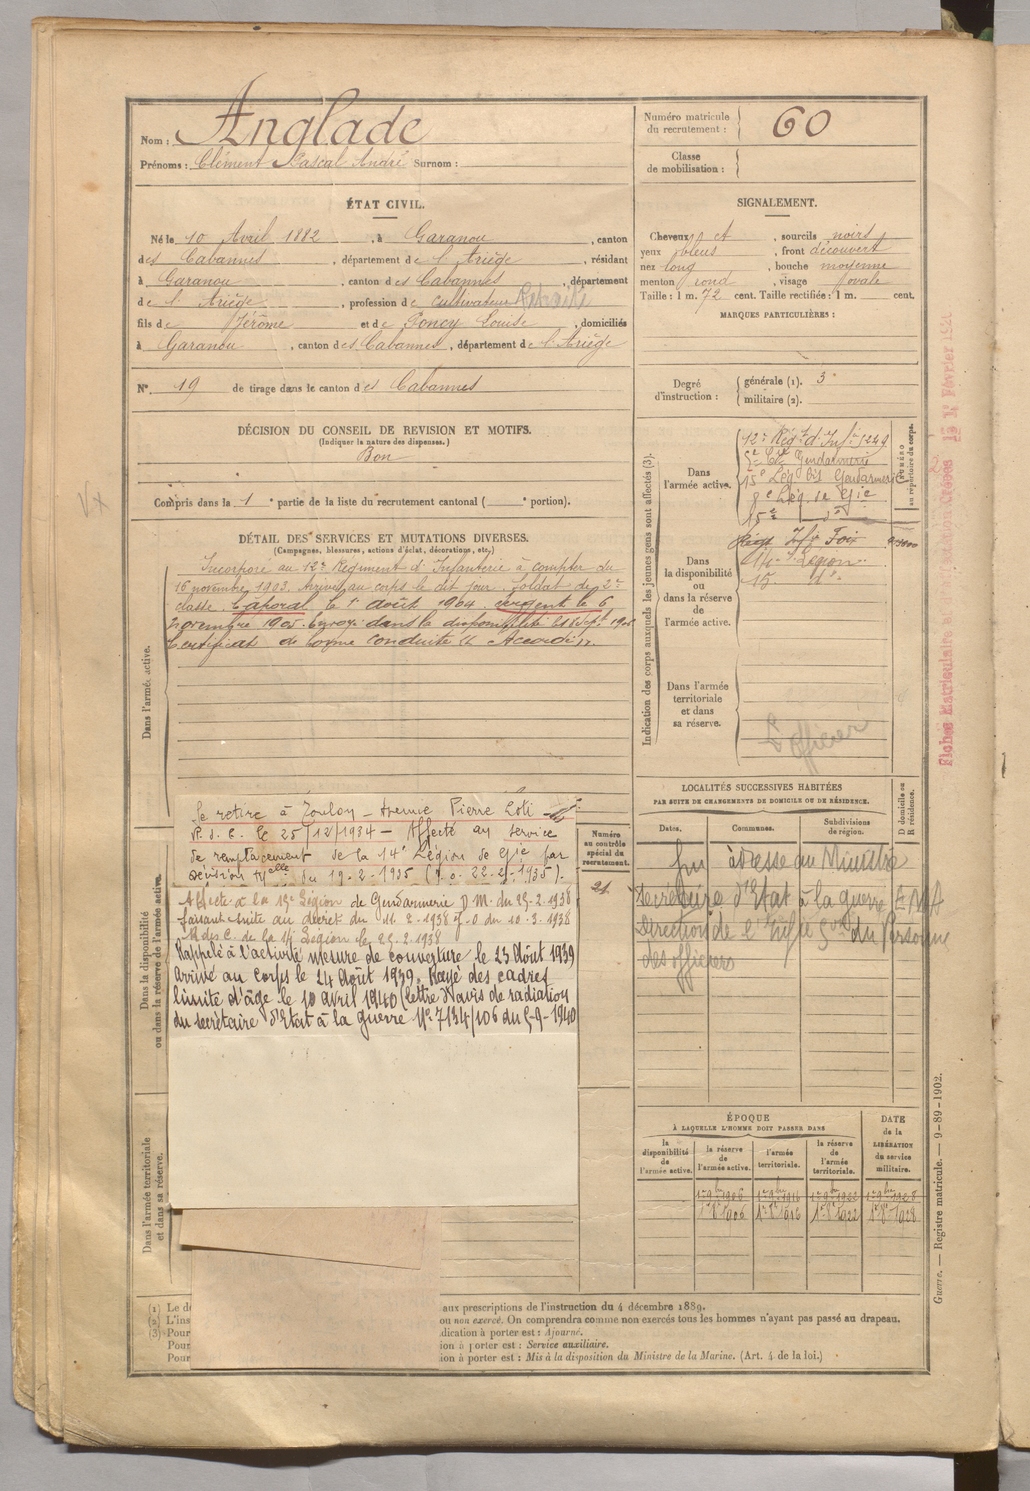 Nom : Anglade
Prénoms : Clément Pascal André Surnom :
Numéro matricule du recrutement : 60
Classe de mobilisation :
ÉTAT CIVIL.
Né le 10 Avril 1882, à Garanou, canton
des Cabannes, département de l'Ariège, résidant
à Garanou, canton des Cabannes, département
de l'Ariège, profession de cultivateur Retraité
fils de Jérôme et de Poncy Louise, domiciliés
à Garanou, canton des Cabannes, département de l'Ariège
N° 19 de tirage dans le canton des Cabannes
SIGNALEMENT.
Cheveux et, sourcils noirs
yeux bleus, front découvert
nez long, bouche moyenne
menton rond, visage ovale
Taille : 1 m. 72 cent. Taille rectifiée : 1 m. cent.
MARQUES PARTICULIÈRES :
Degré d'instruction : générale (1). 3
militaire (2).
DÉCISION DU CONSEIL DE REVISION ET MOTIFS.
(Indiquer la nature des dispenses.)
Bon
Compris dans la 1e partie de la liste du recrutement cantonal ( e portion).
DÉTAIL DES SERVICES ET MUTATIONS DIVERSES.
(Campagnes, blessures, actions d'éclat, décorations, etc.)
Dans l'armée active.
Incorporé au 12e Régiment d'Infanterie à compter du
16 novembre 1903. Arrivé au corps le dit jour. Soldat de 2e
classe. Caporal le 1er août 1904. Sergent le 6
novembre 1905. Envoyé dans la disponibilité le
Certificat de bonne conduite " Accordé".
Dans la disponibilité ou dans la réserve de l'armée active.
Se retire à Toulon – Avenue Pierre Loti
R. d. C. le 25/12/1934 – Affecté au service
de remplacement de la 14e Légion de Gie par
décision du 19-2-1935 (J.O. 22-2-1935).
Affecté à la 15e Légion de Gendarmerie D.M. du 25-2-1938
faisant suite au décret du 11-2-1938 J.O du 10-3-1938
R des C. de la 14e Légion le 25-2-1938
Rappelé à l'activité mesure de couverture le 23 Août 1939
Arrivé au corps le 24 Août 1939. Rayé des cadres
limite d'âge le 10 avril 1940 (lettre d'avis de radiation
du secrétaire d'Etat à la guerre N° 7134/106 du 5-9-1940
Dans l'armée territoriale et dans sa réserve.
Numéro au contrôle spécial du recrutement.
21
Indication des corps auxquels les jeunes gens sont affectés (3).
Numéro au répertoire du corps.
Dans l'armée active.
12e Régt d'Infie 1249
5e Cie Gendarmerie
15e Lég bis Gendarmerie
8e Lég de Gie
15e do
Dans la disponibilité ou dans la réserve de l'armée active.
Régt Inf Foix
14e Légion
15 do
Dans l'armée territoriale et dans sa réserve.
Officier
LOCALITÉS SUCCESSIVES HABITÉES
PAR SUITE DE CHANGEMENTS DE DOMICILE OU DE RÉSIDENCE.
Dates. Communes. Subdivisions de région. D domicile ou R résidence.
adresse au Ministre
Secrétaire d'Etat à la guerre E M A
Direction de l'Infie du Personnel
des officiers
ÉPOQUE
À LAQUELLE L'HOMME DOIT PASSER DANS
la disponibilité de l'armée active.
la réserve de l'armée active.
l'armée territoriale.
la réserve de l'armée territoriale.
DATE de la LIBÉRATION du service militaire.
1er 9bre 1906 1er 9bre 1916 1er 9bre 1922 1er 9bre 1928
1er 8e 1906 1er 8e 1916 1er 8e 1922 1er 8e 1928
(1) Le d
(2) L'ins
(3) Pour
Pour
Pour
aux prescriptions de l'instruction du 4 décembre 1889.
ou non exercé. On comprendra comme non exercés tous les hommes n'ayant pas passé au drapeau.
dication à porter est : Ajourné.
ion à porter est : Service auxiliaire.
ion à porter est : Mis à la disposition du Ministre de la Marine. (Art. 4 de la loi.)
Guerre. — Registre matricule. — 9-89-1902.